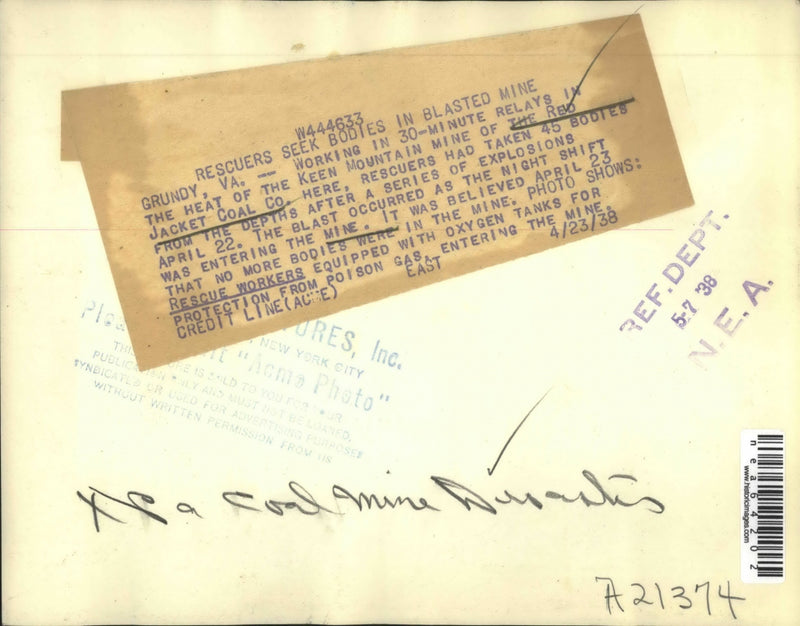 W444633
RESCUERS SEEK BODIES IN BLASTED MINE
GRUNDY, VA. -- WORKING IN 30-MINUTE RELAYS IN
THE HEAT OF THE KEEN MOUNTAIN MINE OF THE RED
JACKET COAL CO. HERE, RESCUERS HAD TAKEN 45 BODIES
FROM THE DEPTHS AFTER A SERIES OF EXPLOSIONS
APRIL 22. THE BLAST OCCURRED AS THE NIGHT SHIFT
WAS ENTERING THE MINE. IT WAS BELIEVED APRIL 23
THAT NO MORE BODIES WERE IN THE MINE. PHOTO SHOWS:
RESCUE WORKERS EQUIPPED WITH OXYGEN TANKS FOR
PROTECTION FROM POISON GAS, ENTERING THE MINE.
CREDIT LINE (ACME) EAST 4/23/38
REF. DEPT.
5-7 '38
N. E. A.
INC.
NEW YORK CITY
"Acme Photo"
IS SOLD TO YOU FOR YOUR
ONLY AND MUST NOT BE LOANED,
SYNDICATED OR USED FOR ADVERTISING PURPOSES
WITHOUT WRITTEN PERMISSION FROM US
Coal Mine Disasters
nea64202
www.historicimages.com
A21374